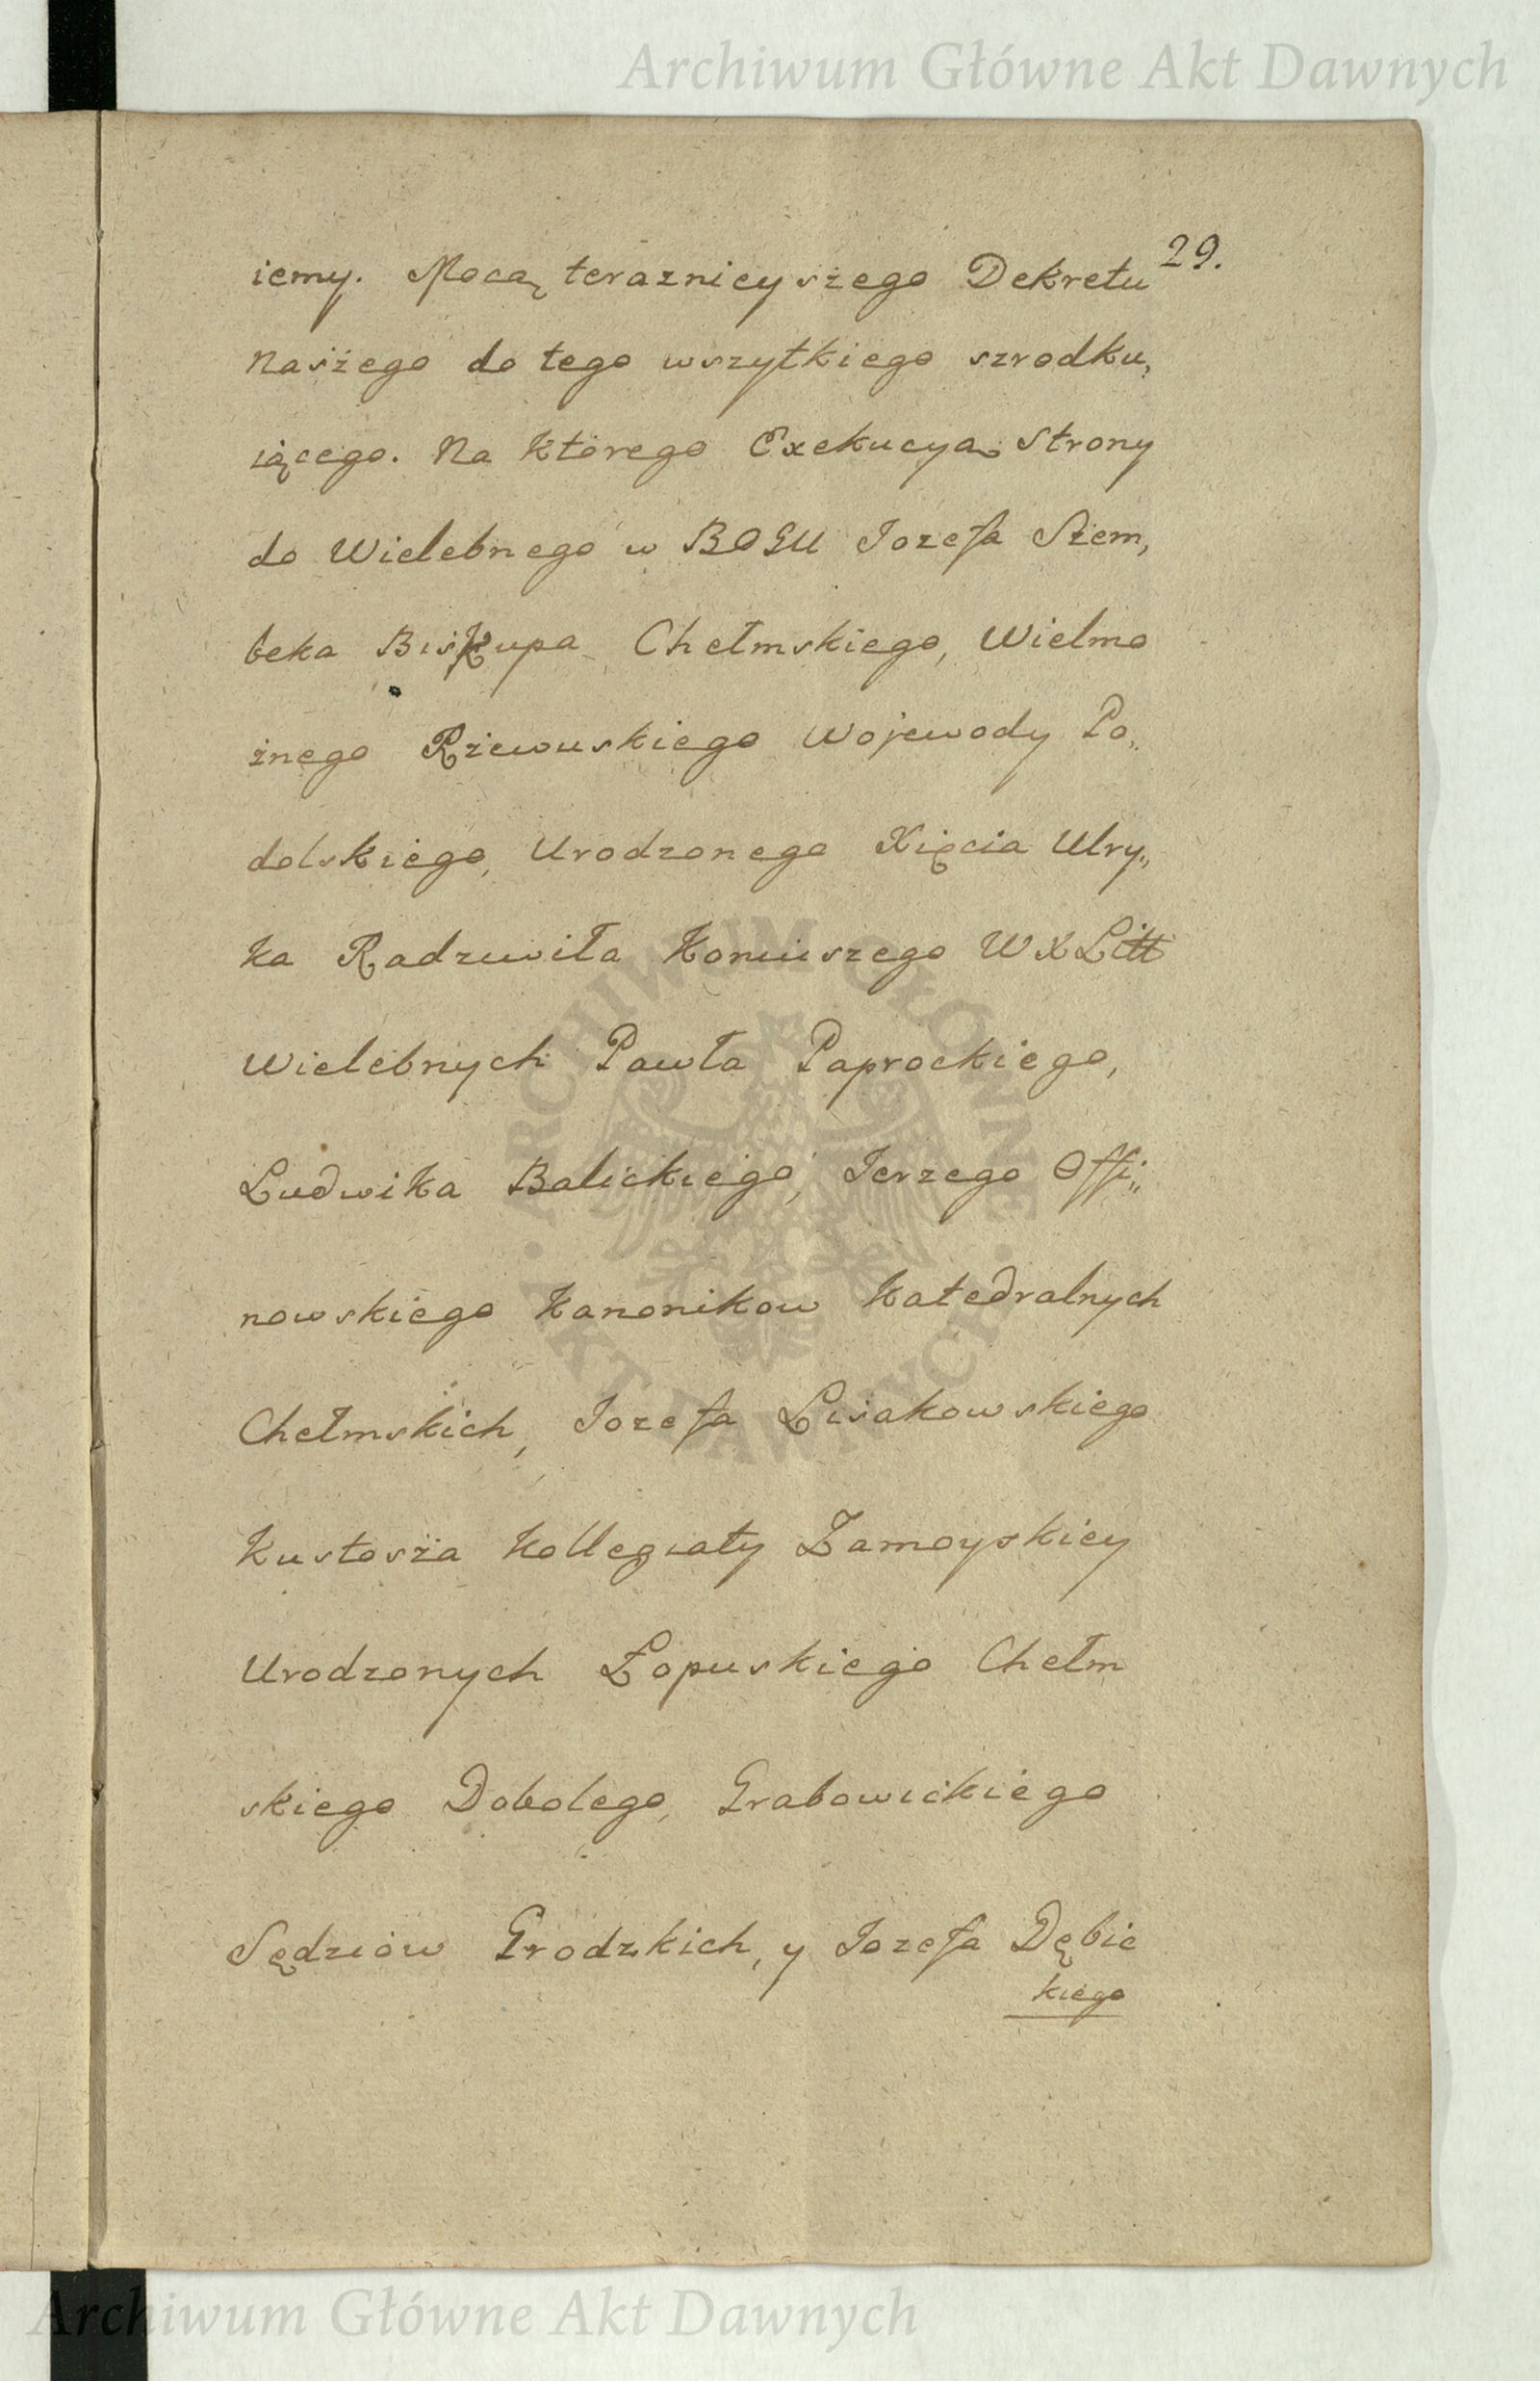 Archiwum Główne Akt Dawnych
29.
iemy. Mocą teraznieyszego Dekretu
naszego do tego wszytkiego szrodku,
iącego. Na ktorego Exekucyą Strony
do Wielebnego w BOGU Jozefa Szem,
beka Biskupa Chełmskiego, Wielmo
żnego Rżewuskiego Wojewody Po„
dolskiego, Urodzonego Xięcia Ulry„
ka Radziwiła Koniuszego WXLitt
Wielebnych Pawła Paprockiego,
Ludwika Balickiego, Jerzego Offi„
nowskiego Kanonikow Katedralnych
Chełmskich, Jozefa Lisakowskiego
Kustosza Kollegiaty Zamoyskiey
Urodzonych Łopuskiego Chełm
skiego Dobolego, Grabowickiego
Sędziów Grodzkich, y Jozefa Dębic
kiego
ARCHIWUM GŁÓWNE AKT DAWNYCH
Archiwum Główne Akt Dawnych